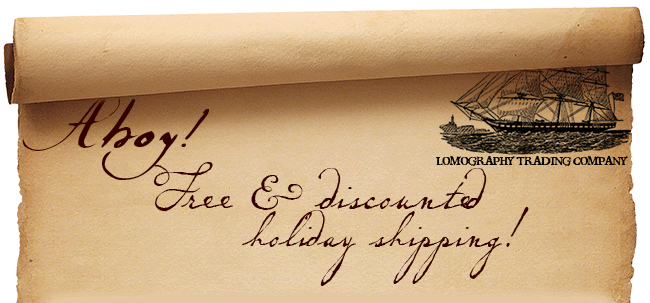 Ahoy!
LOMOGRAPHY TRADING COMPANY
Free & discounted
holiday shipping!